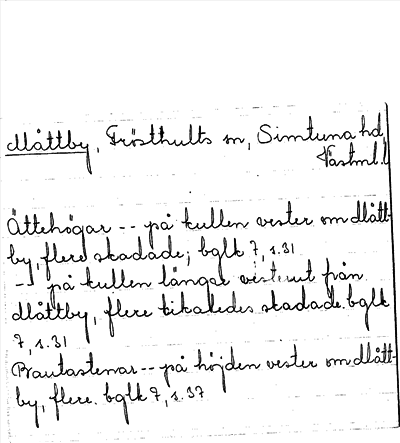 Måttby, Frösthults sn, Simtuna hd,
Västml.l
Ättehögar -- på kullen vester om Mått-
by, flere skadade; bglk 7, s.31
-- på kullen längre vesterut från
Måttby, flere likaledes skadade. bglk
7, s.31
Brautastenar -- på höjden vester om Mått-
by, flere. bglk 7, s.37